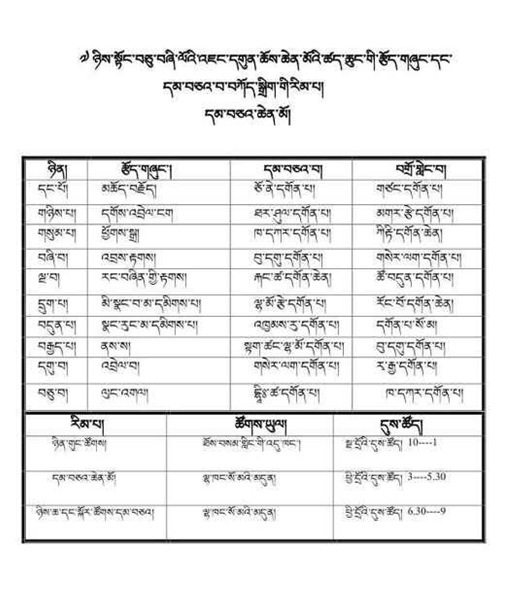 ༡ ཉིས་སྟོང་བཅུ་བཞི་ལོའི་འཇང་དགུན་ཆོས་ཆེན་མོའི་ཚད་ཆུང་གི་རྩོད་གཞུང་དང་
དམ་བཅའ་བ་བཀོད་སྒྲིག་གི་རིམ་པ།
དམ་བཅའ་ཆེན་མོ།
ཉིན། རྩོད་གཞུང་། དམ་བཅའ་བ། བགྲོ་གླེང་བ།
དང་པོ། མཆོད་བརྗོད། ཅོ་ནེ་དགོན་པ། གཙང་དགོན་པ།
གཉིས་པ། དགོས་འབྲེལ་ངག ཐར་ཤུལ་དགོན་པ། མགར་རྩེ་དགོན་པ།
གསུམ་པ། ཕྱོགས་སྒྲ། ཁ་དཀར་དགོན་པ། ཀིརྟི་དགོན་ཆེན།
བཞི་བ། འབྲས་རྟགས། བྱ་དགུ་དགོན་པ། གསེར་ལག་དགོན་པ།
ལྔ་བ། རང་བཞིན་གྱི་རྟགས། རྐང་ཚ་དགོན་ཆེན། ཚོ་བདུན་དགོན་པ།
དྲུག་པ། མི་སྣང་བ་མ་དམིགས་པ། ལྷ་མོ་རྩེ་དགོན་པ། རོང་བོ་དགོན་ཆེན།
བདུན་པ། སྣང་རུང་མ་དམིགས་པ། འཁྱམས་རུ་དགོན་པ། དགོན་པ་སོ་མ།
བརྒྱད་པ། ནས་ས། སྟག་ཚང་ལྷ་མོ་དགོན་པ། བྱ་དགུ་དགོན་པ།
དགུ་བ། འབྲེལ་བ། གསེར་ལག་དགོན་པ། ར་རྒྱ་དགོན་པ།
བཅུ་བ། ལྱང་འགལ། ཚ་དགོན་པ། ཁ་དཀར་དགོན་པ།
རིམ་པ། ཚོགས་ཡུལ། དུས་ཚོད།
ཉིན་གུང་ཚོགས། ཐོས་བསམ་གླིང་གི་འདུ་ཁང་། སྔ་དྲོའི་དུས་ཚོད། 10----1
དམ་བཅའ་ཆེན་མོ། ལྷ་ཁང་སོ་མའི་མདུན། ཕྱི་དྲོའི་དུས་ཚོད། 3----5.30
ཉིས་ཆ་དང་སྐོར་ཚོགས་དམ་བཅའ། ལྷ་ཁང་སོ་མའི་མདུན། ཕྱི་དྲོའི་དུས་ཚོད། 6.30----9